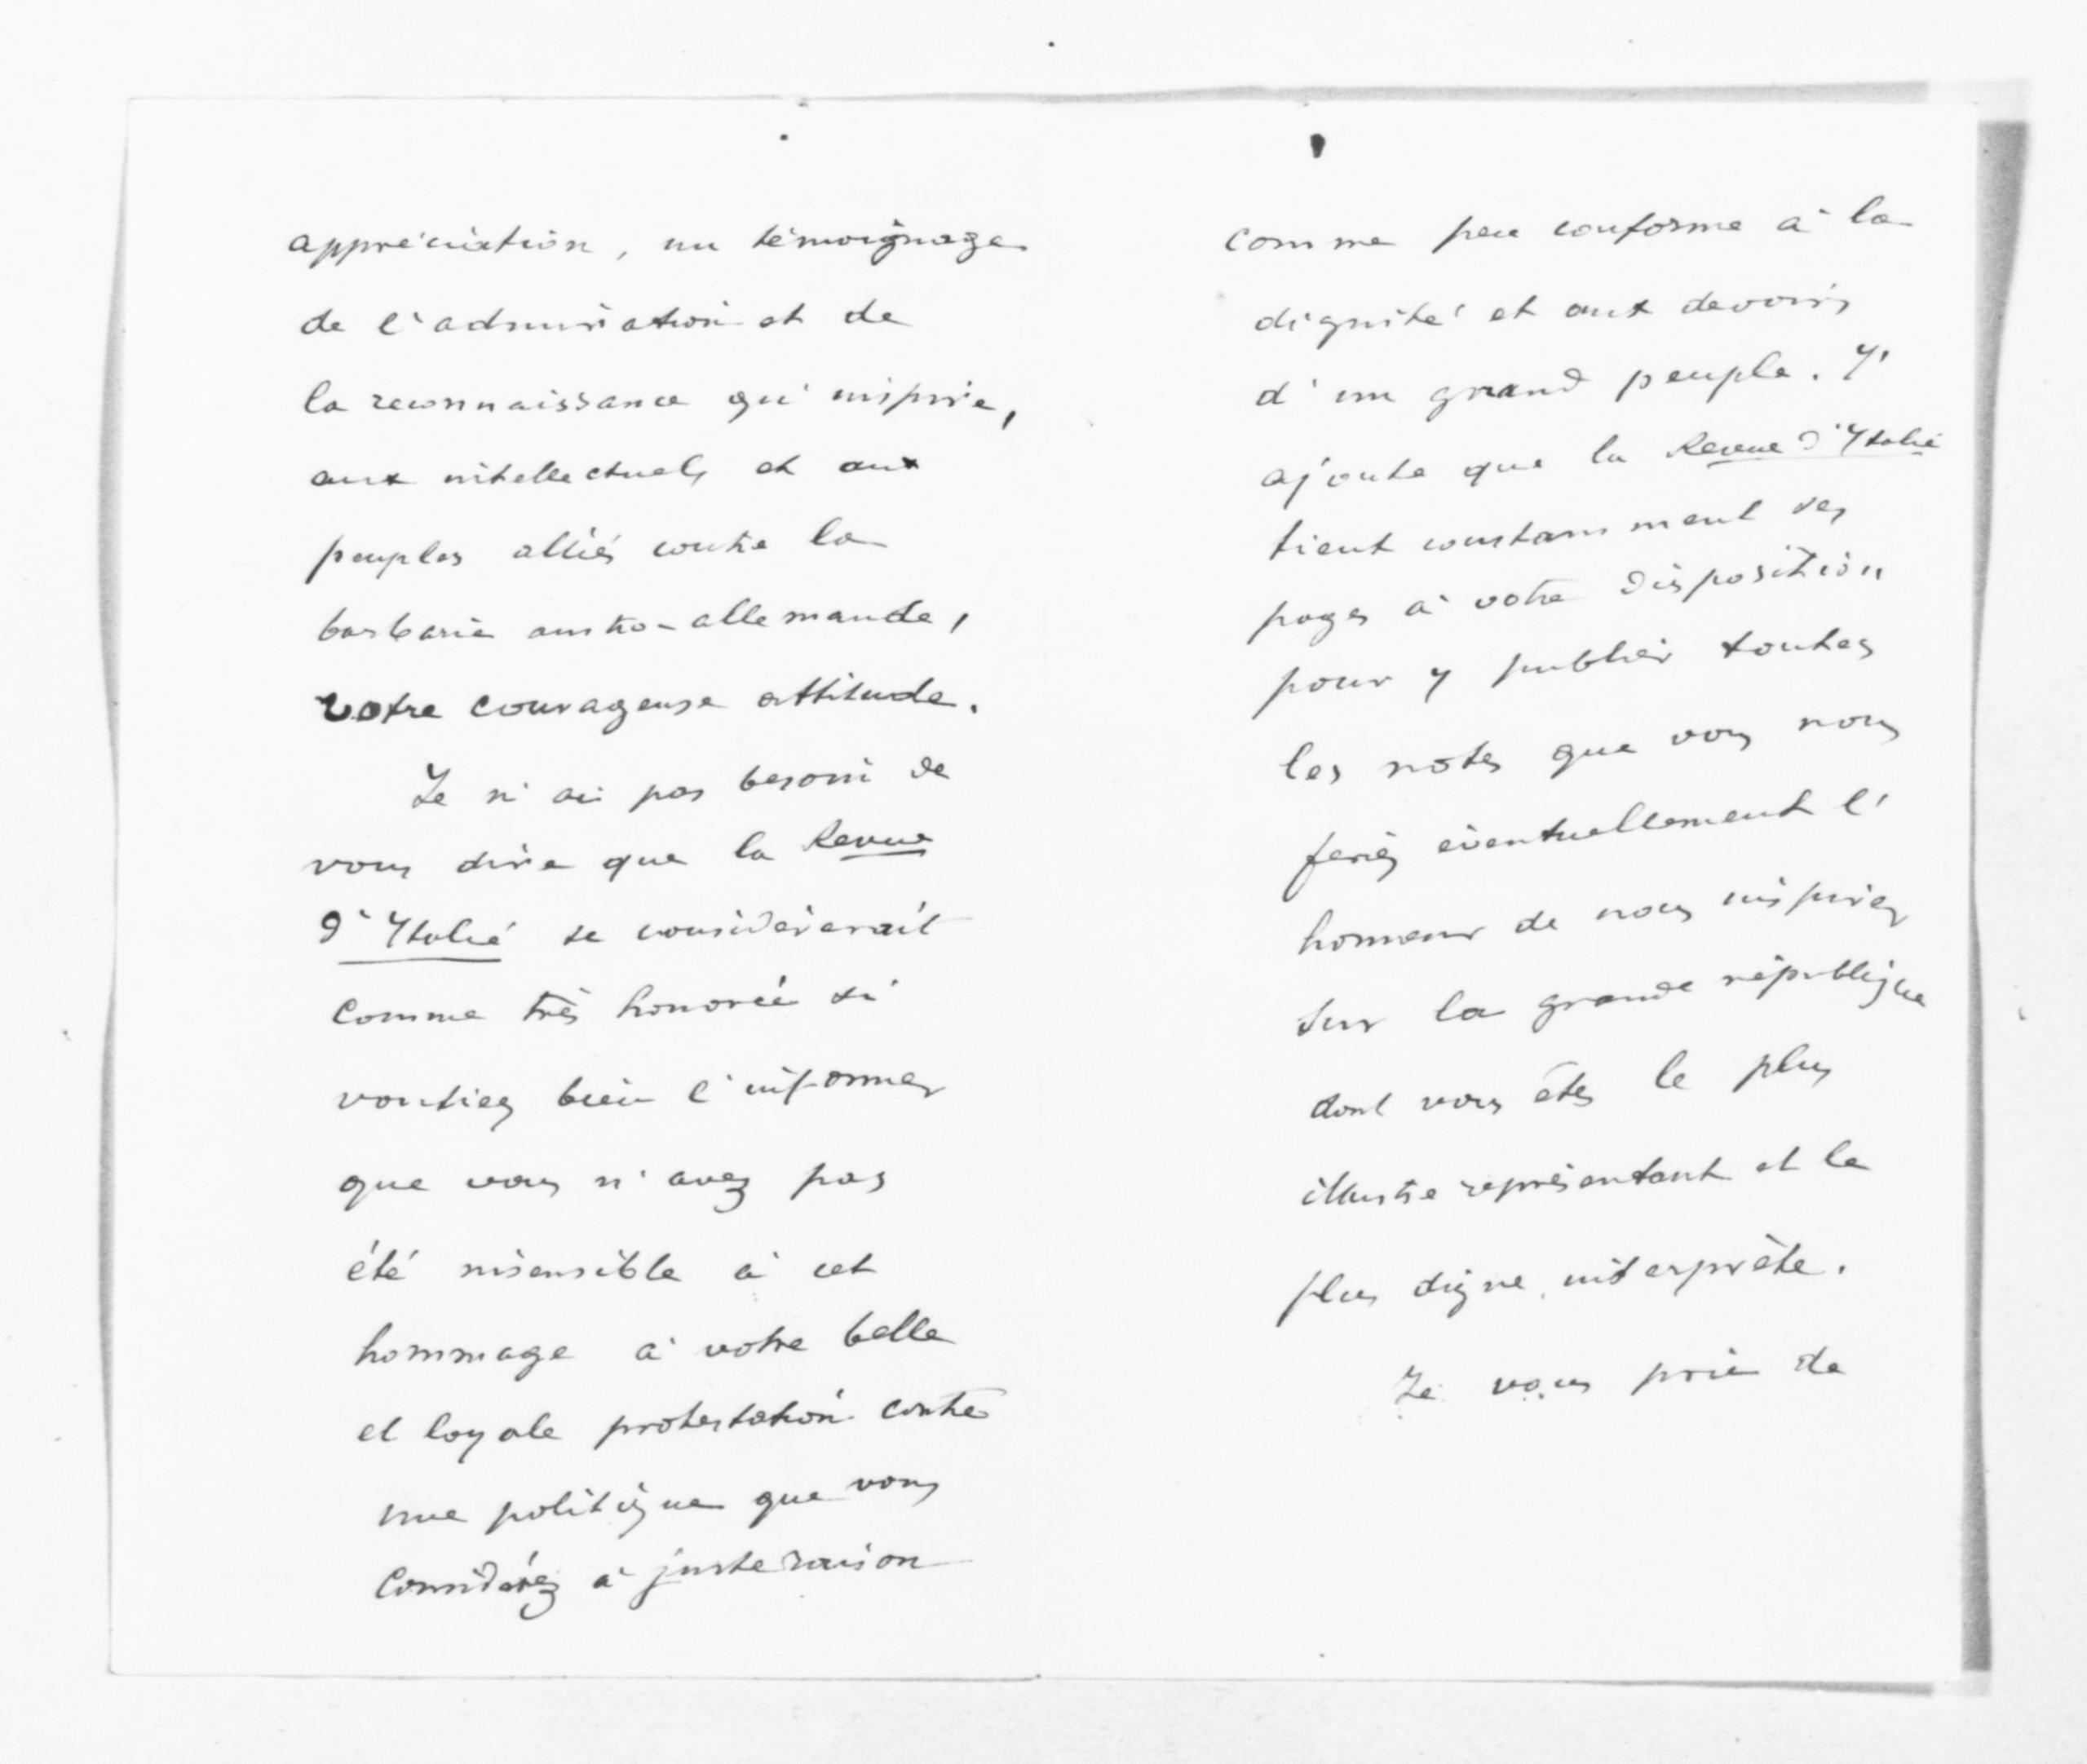 appréciation, un témoignage
de l'admiration et de
la reconnaissance qu'inspire,
aux intellectuels et aux
peuples alliés contre la
barbarie austro-allemande,
votre courageuse attitude.
Je n'ai pas besoin de
vous dire que la Revue
d'Italie se considérerait
comme très honorée si
vouliez bien l'informer
que vous n'avez pas
été insensible à cet
hommage à votre belle
et loyale protestation contre
une politique que vous
considérez à juste raison
comme peu conforme à la
dignité et aux devoirs
d'un grand peuple. J'
ajoute que la Revue d'Italie
tient constamment ses
pages à votre disposition
pour y publier toutes
les notes que vous nous
feriez éventuellement l'
honneur de nous inspirer
sur la grande république
dont vous êtes le plus
illustre représentant et le
plus digne interprète.
Je vous prie de